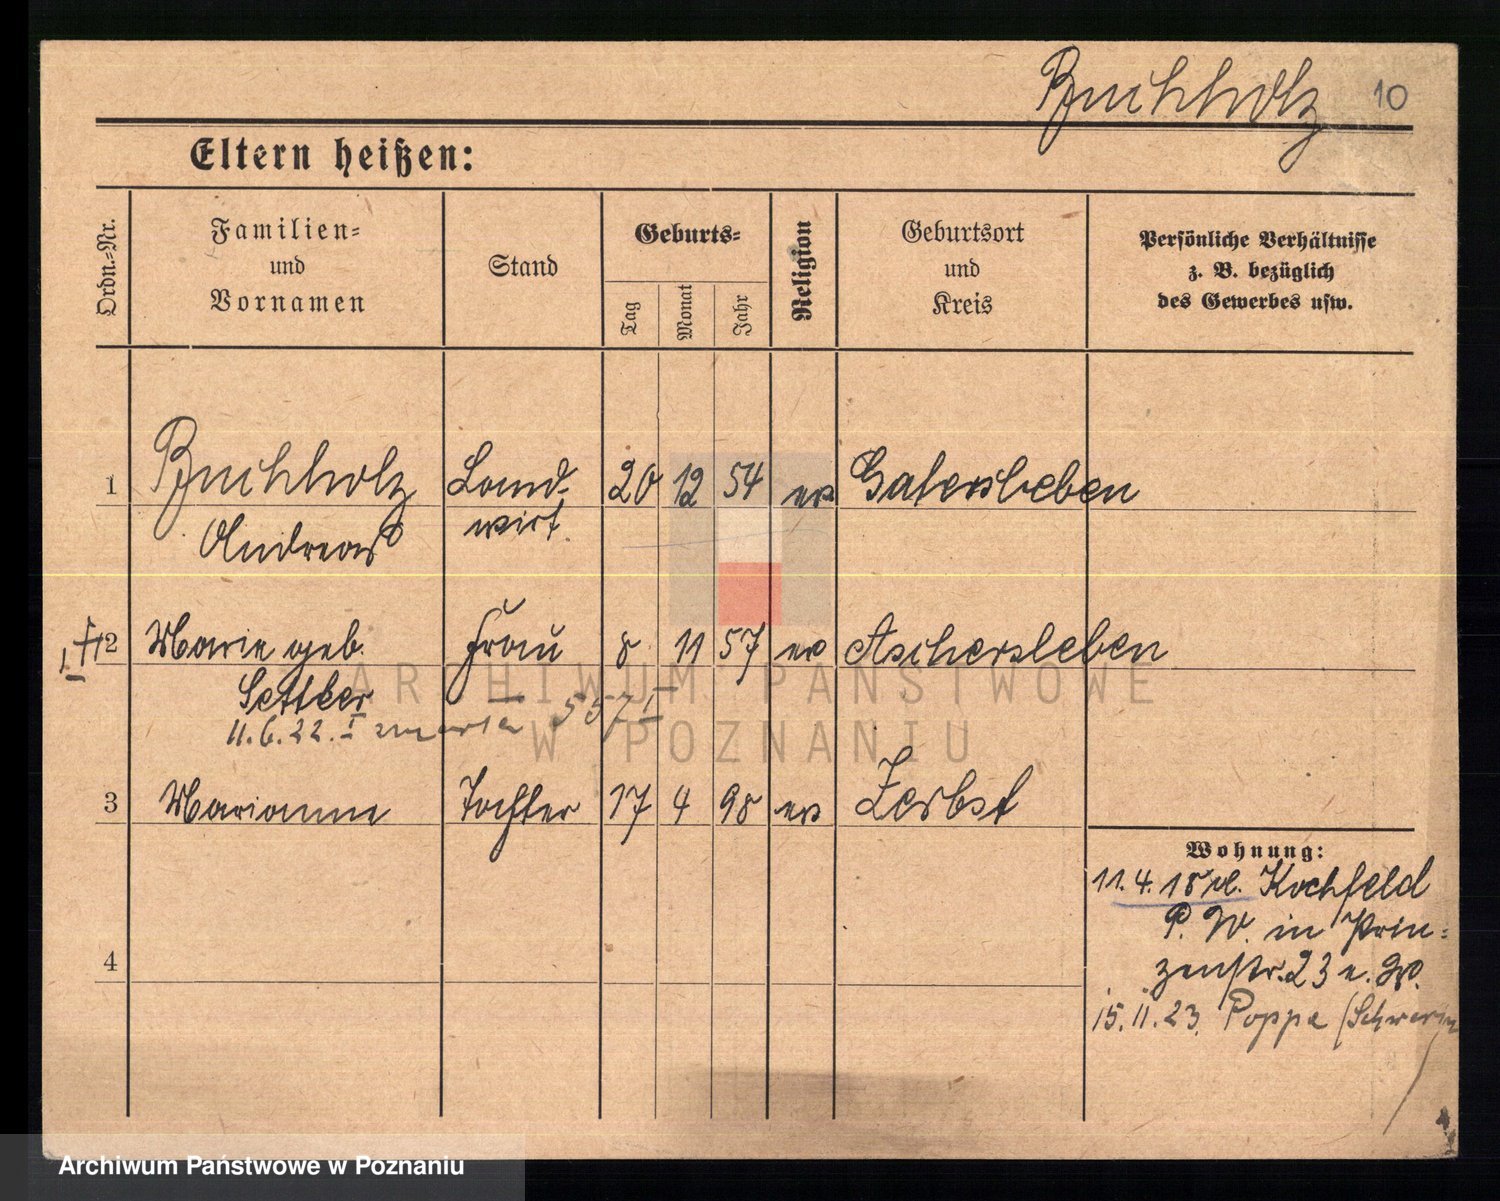 Buchholz 10
Eltern heißen:
Ordn.-Nr.
Familien-
und
Vornamen
Stand
Geburts-
Tag
Monat
Jahr
Religion
Geburtsort
und
Kreis
Persönliche Verhältnisse
z. B. bezüglich
des Gewerbes usw.
1 Buchholz Land- 20 12 54 ev Gatersleben
Andreas wirt.
2 Marie geb. Frau 8 11 57 ev Aschersleben
11.6.22. I zmarła 557 I
3 Marianne Tochter 17 4 98 ev Zerbst
4
Wohnung:
11.4.18 Kochfeld
P. W. in Prin-
zenstr. 23
15.11.23. Poppe (Schwerin
ARCHIWUM PAŃSTWOWE
W POZNANIU
Archiwum Państwowe w Poznaniu